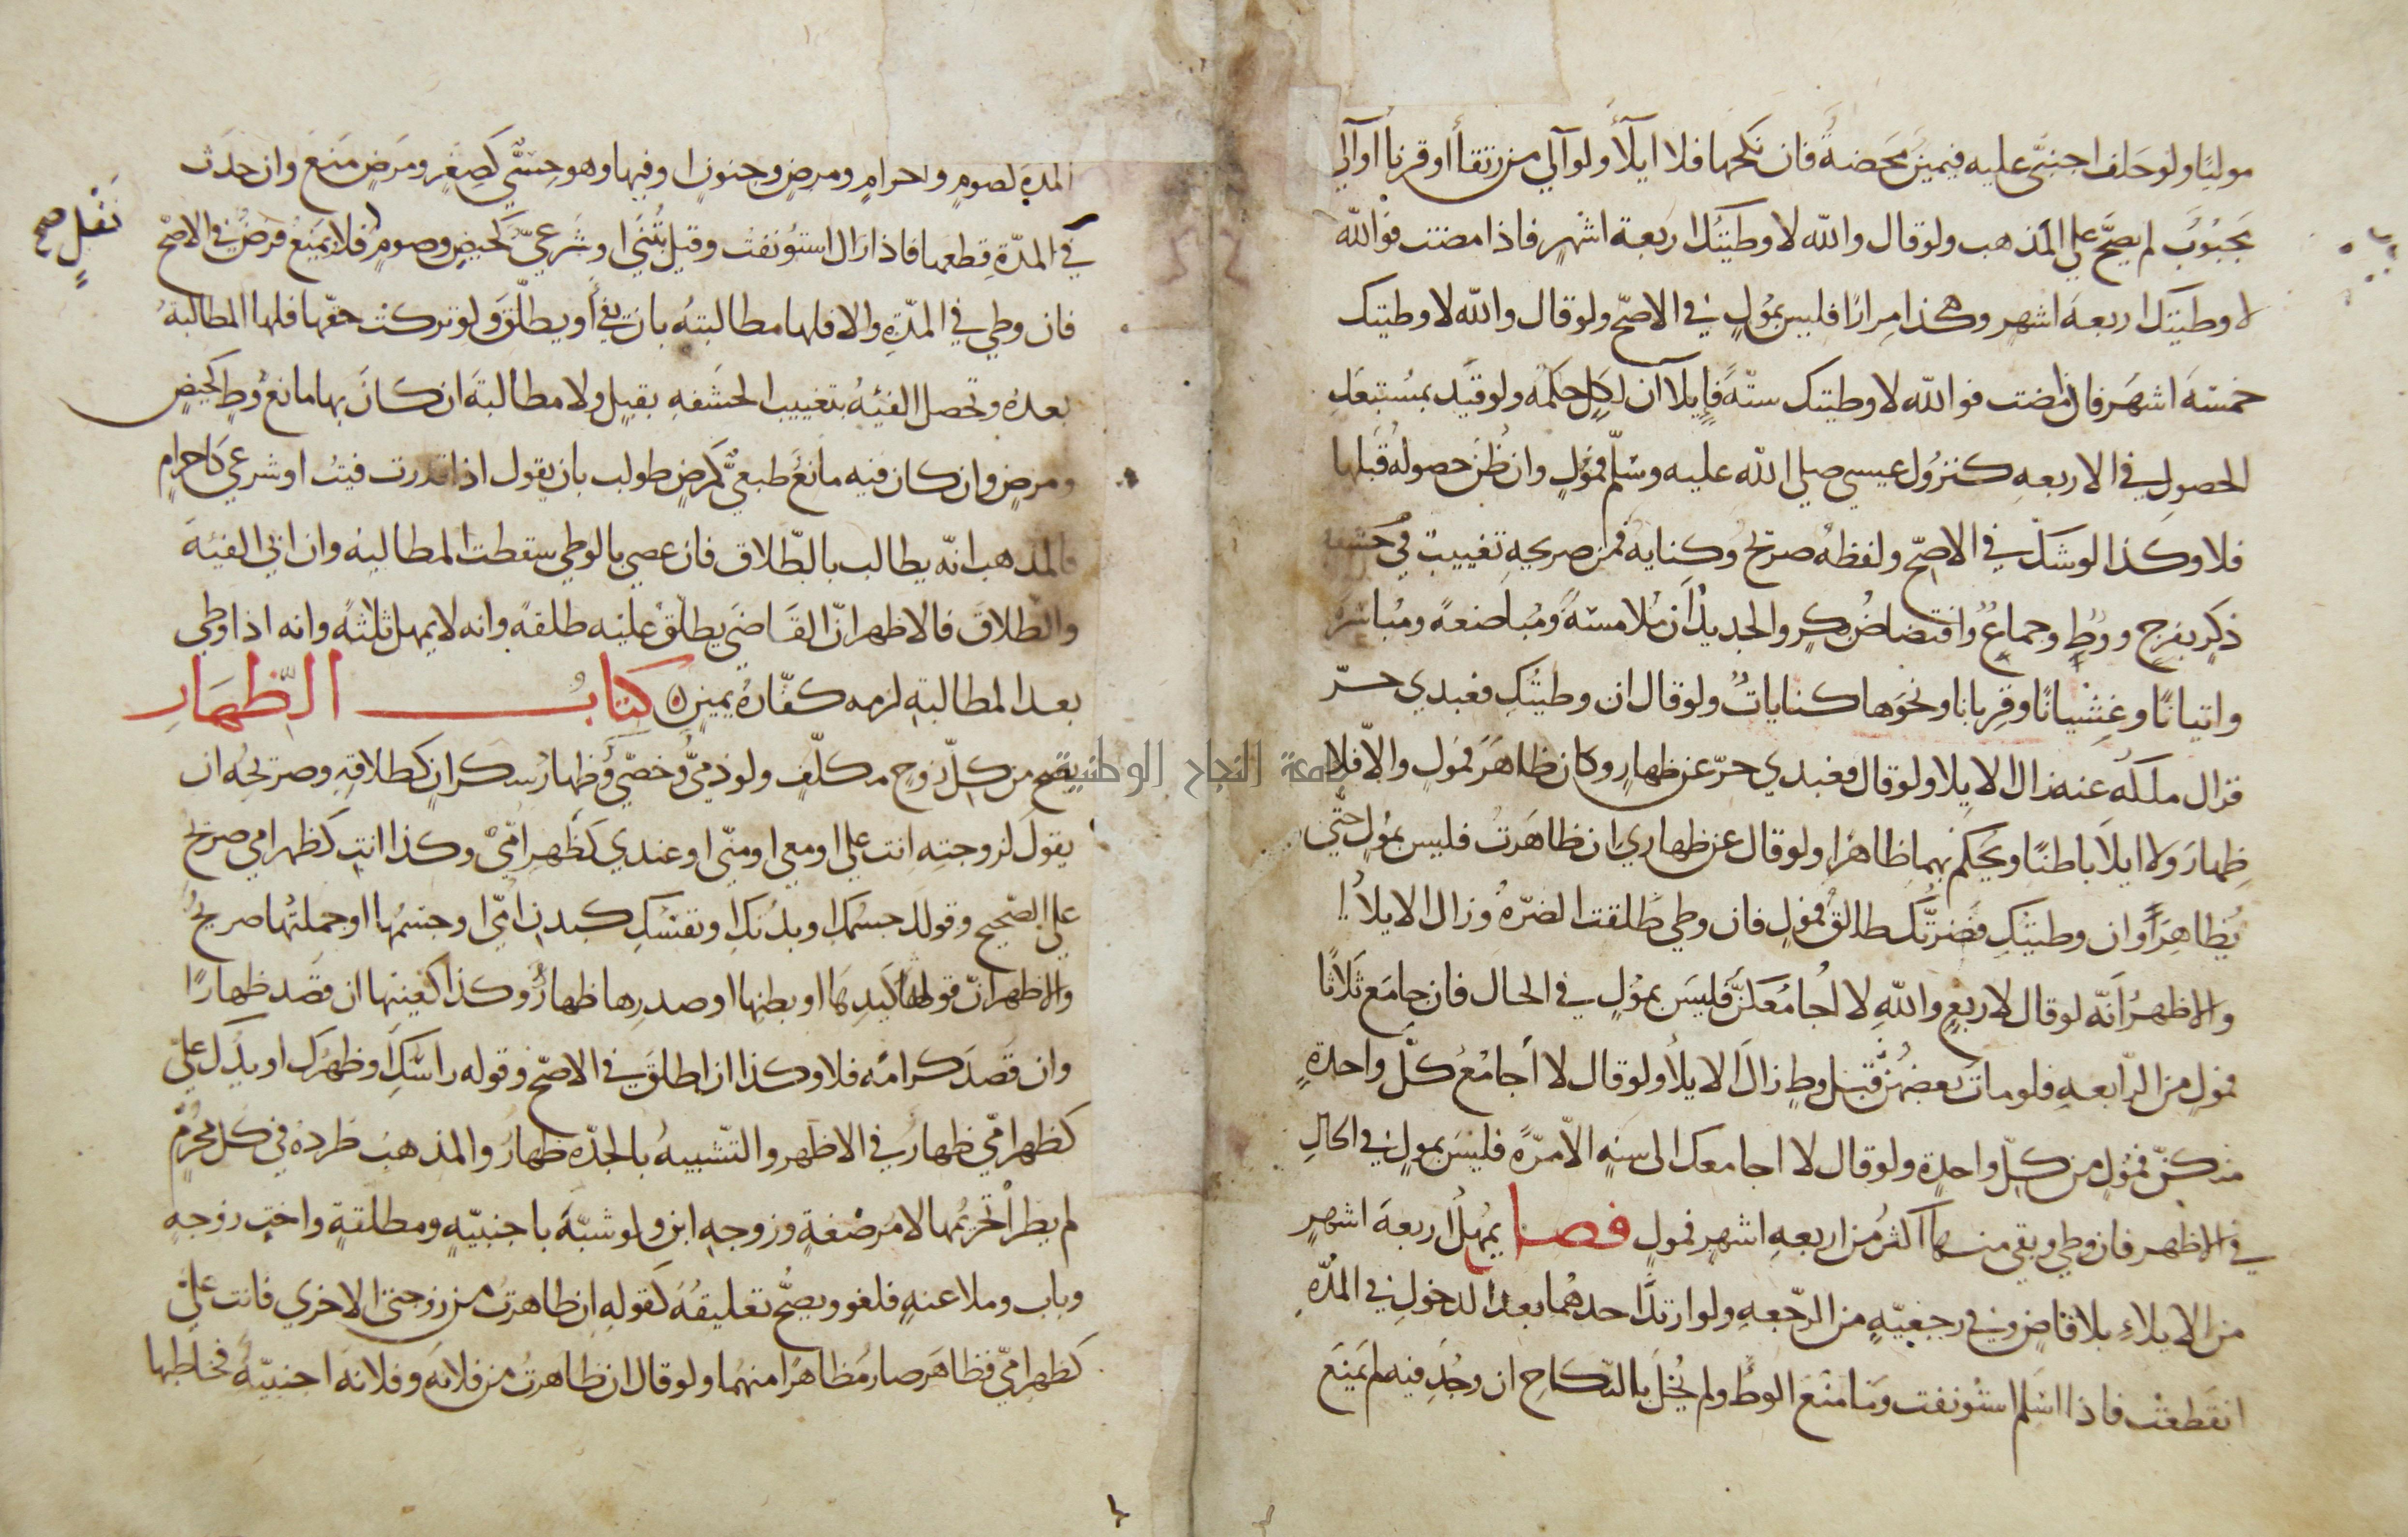 موليًا ولو حلف اجنبيّ عليه فيمين محضة فان نكحها فلا ايلاء ولو آلي من رتقا أو قرنا أو آلي
مجبوب لم يصحّ علي المذهب ولو قال والله لا وطيتك اربعة اشهر فاذا مضت فوالله
لا وطيتك اربعة اشهر وهكذا مرارًا فليس بمُولٍ في الاصحّ ولو قال والله لا وطيتك
خمسة اشهر فاذا مضت فوالله لا وطيتك ستّة فإيلاآن لكلٍ حكمه ولو قيّد بمستبعد
الحصول في الاربعه كنزول عيسي صلي الله عليه وسلّم فمُولٍ وان ظن حصوله قبلها
فلا وكذا لو شك في الاصحّ ولفظه صريح وكناية فمن صريحه تغييب
ذكرٍ بفرج ووطٍ وجماعٌ وافتضاض بكر والجديد أن ملامسةً ومُباضعةً ومُباشرة
واتيانًا وغشيانًا وقربانا ونحوها كناياتٌ ولو قال ان وطيتُكِ فعبدي حرّ
فزال ملكه عنه زال الايلا ولو قال فعبدي حرّ عن ظهاري وكان ظاهَرَ فمولٍ والاّ فلا
ظهارَ ولا ايلا باطنًا ويُحكم بهما ظاهرًا ولو قال عن ظهاري ان ظاهرتُ فليس بمولٍ حتّي
يُظاهِرَ أو ان وطيتُكِ فضرّتُك طالق فمولٍ فان وطي طلقت الضرّة وزال الايلاُ
والاظهرُ أنّه لو قال لاربعٍ واللهِ لا اُجامعكنّ فليسَ بمُولٍ في الحال فان جامَع ثلاثًا
فمولٍ من الرّابعه فلو مات بعضهنّ قبل وطٍ زال الايلاُ ولو قال لا أجامعُ كلّ واحدةٍ
منكنّ فمُولٍ من كلّ واحدة ولو قال لا اجامعك الى سنهٍ الاّ مرّةً فليسَ بمولٍ في الحالِ
في الاظهر فان وطي وبقي منها اكثرُ من اربعهِ اشهرٍ فمولٍ فصل يُمهلُ أربعةَ اشهرٍ
من الايلاءِ بلا قاضٍ وفي رجعيّهٍ من الرّجعه ولو ارتدَّ احدهُما بعد الدخولِ في المُدّهِ
انقطعتْ فاذا اسلم استُونفت وما منعَ الوطُ ولم يُخلَّ بالنّكاحِ ان وجُدِ فيه لم يَمنَع
المدة لصومٍ واحرامٍ ومرضٍ وجنونٍ او فيها وهو حسّيّ كصغرٍ ومرضٍ منعَ وان حدث
في المدّةِ قطعها فاذا زال استُونفت وقيل تُبني او شرعيّ كحيضٍ وصوم نفل فلا يَمنع فرضٌ في الاصحّ
نفل صح
فان وطي في المدّةِ والا فلها مطالبتهُ بان يفئ أو يطلّق ولو تركت حقّها فلها المطالبةُ
بعده وتحصل الفيئهُ بتغييب الحشفهِ بقبلٍ ولا مطالبةَ ان كانَ بها مانعُ وطٍ كحيضٍ
ومرضٍ وان كان فيه مانعٌ طبعيٌّ كمرضٍ طولب بان يقول اذا قدرت فيتُ او شرعي كاحرامٍ
فالمذهب انّه يطالب بالطّلاق فان عصي بالوطي سقطت المطالبة وان ابي الفيئةَ
والطّلاقَ فالاظهر انّ القاضيَ يطلّقُ عليه طلقةً وانه لا يمهل ثلثةً وانه اذا وطي
بعد المطالبةِ لزمه كفّارةُ يمينٍ كتابُ الظِّهَارِ
يصحّ من كلّ زوجٍ مكلّفٍ ولو ذميٌّ وخصيٌّ وظهارُ سكرانٍ كطلاقهِ وصريحُه ان
يقولَ لزوجتهِ انت علي او معي او منّي او عندي كظهرِ امّي وكذا انتِ كظهر امي صريح
علي الصّحيح وقوله جسمُكِ او بدنُكِ او نفسُكِ كبدن امّي او جسمُها او جملتُها صريحٌ
والاظهر انّ قوله كيدِها او بطنِها او صدرِها ظهارٌ وكذا كعينها ان قصَد ظهارًا
وان قَصَد كرامةً فلا وكذا ان اطلقَ في الاصحّ وقوله راسُكِ أو ظهرُكِ او يدُكِ عليّ
كظهر امّي ظهارٌ في الاظهر والتّشبيهُ بالجدّه ظهارٌ والمذهبَ طرده في كل محرَّمٍ
لم يطرأ تحريمُها لا مُرضعةٍ وزوجهِ ابنٍ ولو شبّهَ باجنبيّهٍ ومطلقةٍ واختِ زوجهٍ
وبابٍ وملاعنهٍ فلغو ويصحُّ تعليقُهُ كقولهِ ان ظاهرتُ من زوجتي الاخري فانت عليّ
كظهر امّي فظاهَر صار مُظاهرًا منهُما ولو قال ان ظاهرتُ من فلانهَ وفلانهَ اجنبيّةٌ فخاطبها
جامعة النجاح الوطنية